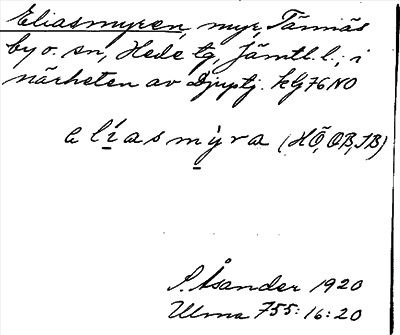 Eliasmyren, myr, Tännäs
by o. sn, Hede tg, Jämtl. l.; i
närheten av Djuptj. kG76NO
elíasmỳra (HÖ, OB, JB)
S. Åsander 1920
Ulma 755:16:20